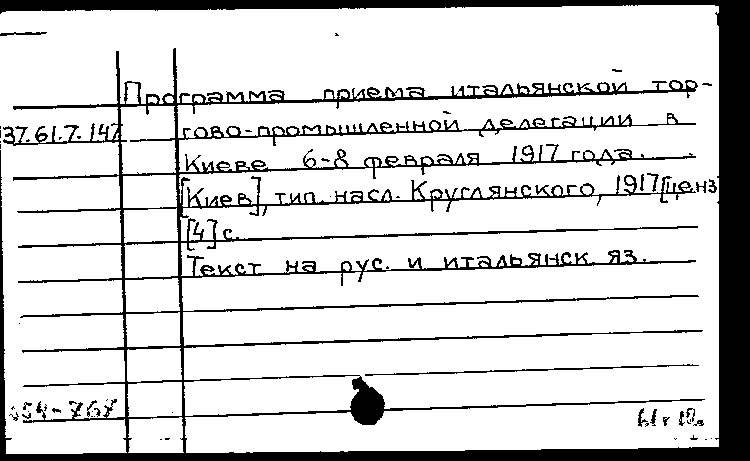 Программа приема итальянской тор-
37.61.7.147 гово-промышленной делегации в
Киеве 6-8 февраля 1917 года.
[Киев], тип. насл. Круглянского, 1917 [ценз
[4] с.
Текст на рус. и итальянск яз.